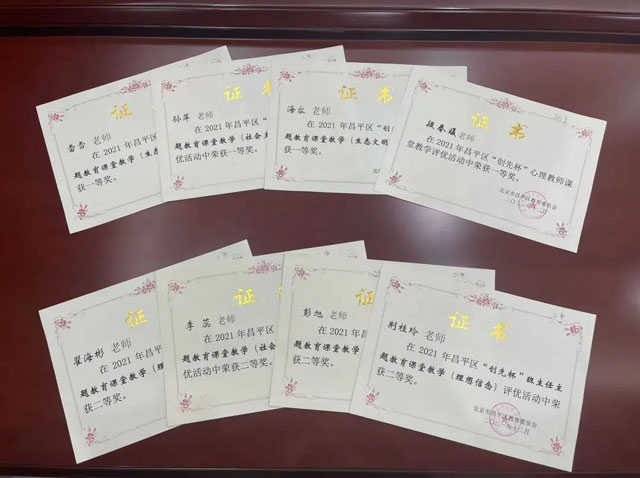 证
老师
在 2021 年昌平区
题教育课堂教学（生态
获一等奖。
证书
孙萍 老师
在 2021 年昌平区
题教育课堂教学（社会主
优活动中荣获一等奖。
证书
海容 老师
在 2021 年昌平区“创
题教育课堂教学（生态文明
获一等奖。
证书
老师
在 2021 年昌平区“创先杯”心理教师课
堂教学评优活动中荣获一等奖。
北京市昌平区教育委员会
证
翟海彬 老师
在 2021 年昌平区
题教育课堂教学（理
获二等奖。
证书
李蕊 老师
在 2021 年昌平区
题教育课堂教学（社会
优活动中荣获二等奖。
证书
彭旭 老师
在 2021 年昌平区
题教育课堂教学（
获二等奖。
证书
荆桂玲 老师
在 2021 年昌平区“创先杯”班主任主
题教育课堂教学（理想信念）评优活动中荣
获二等奖。
北京市昌平区教育委员会